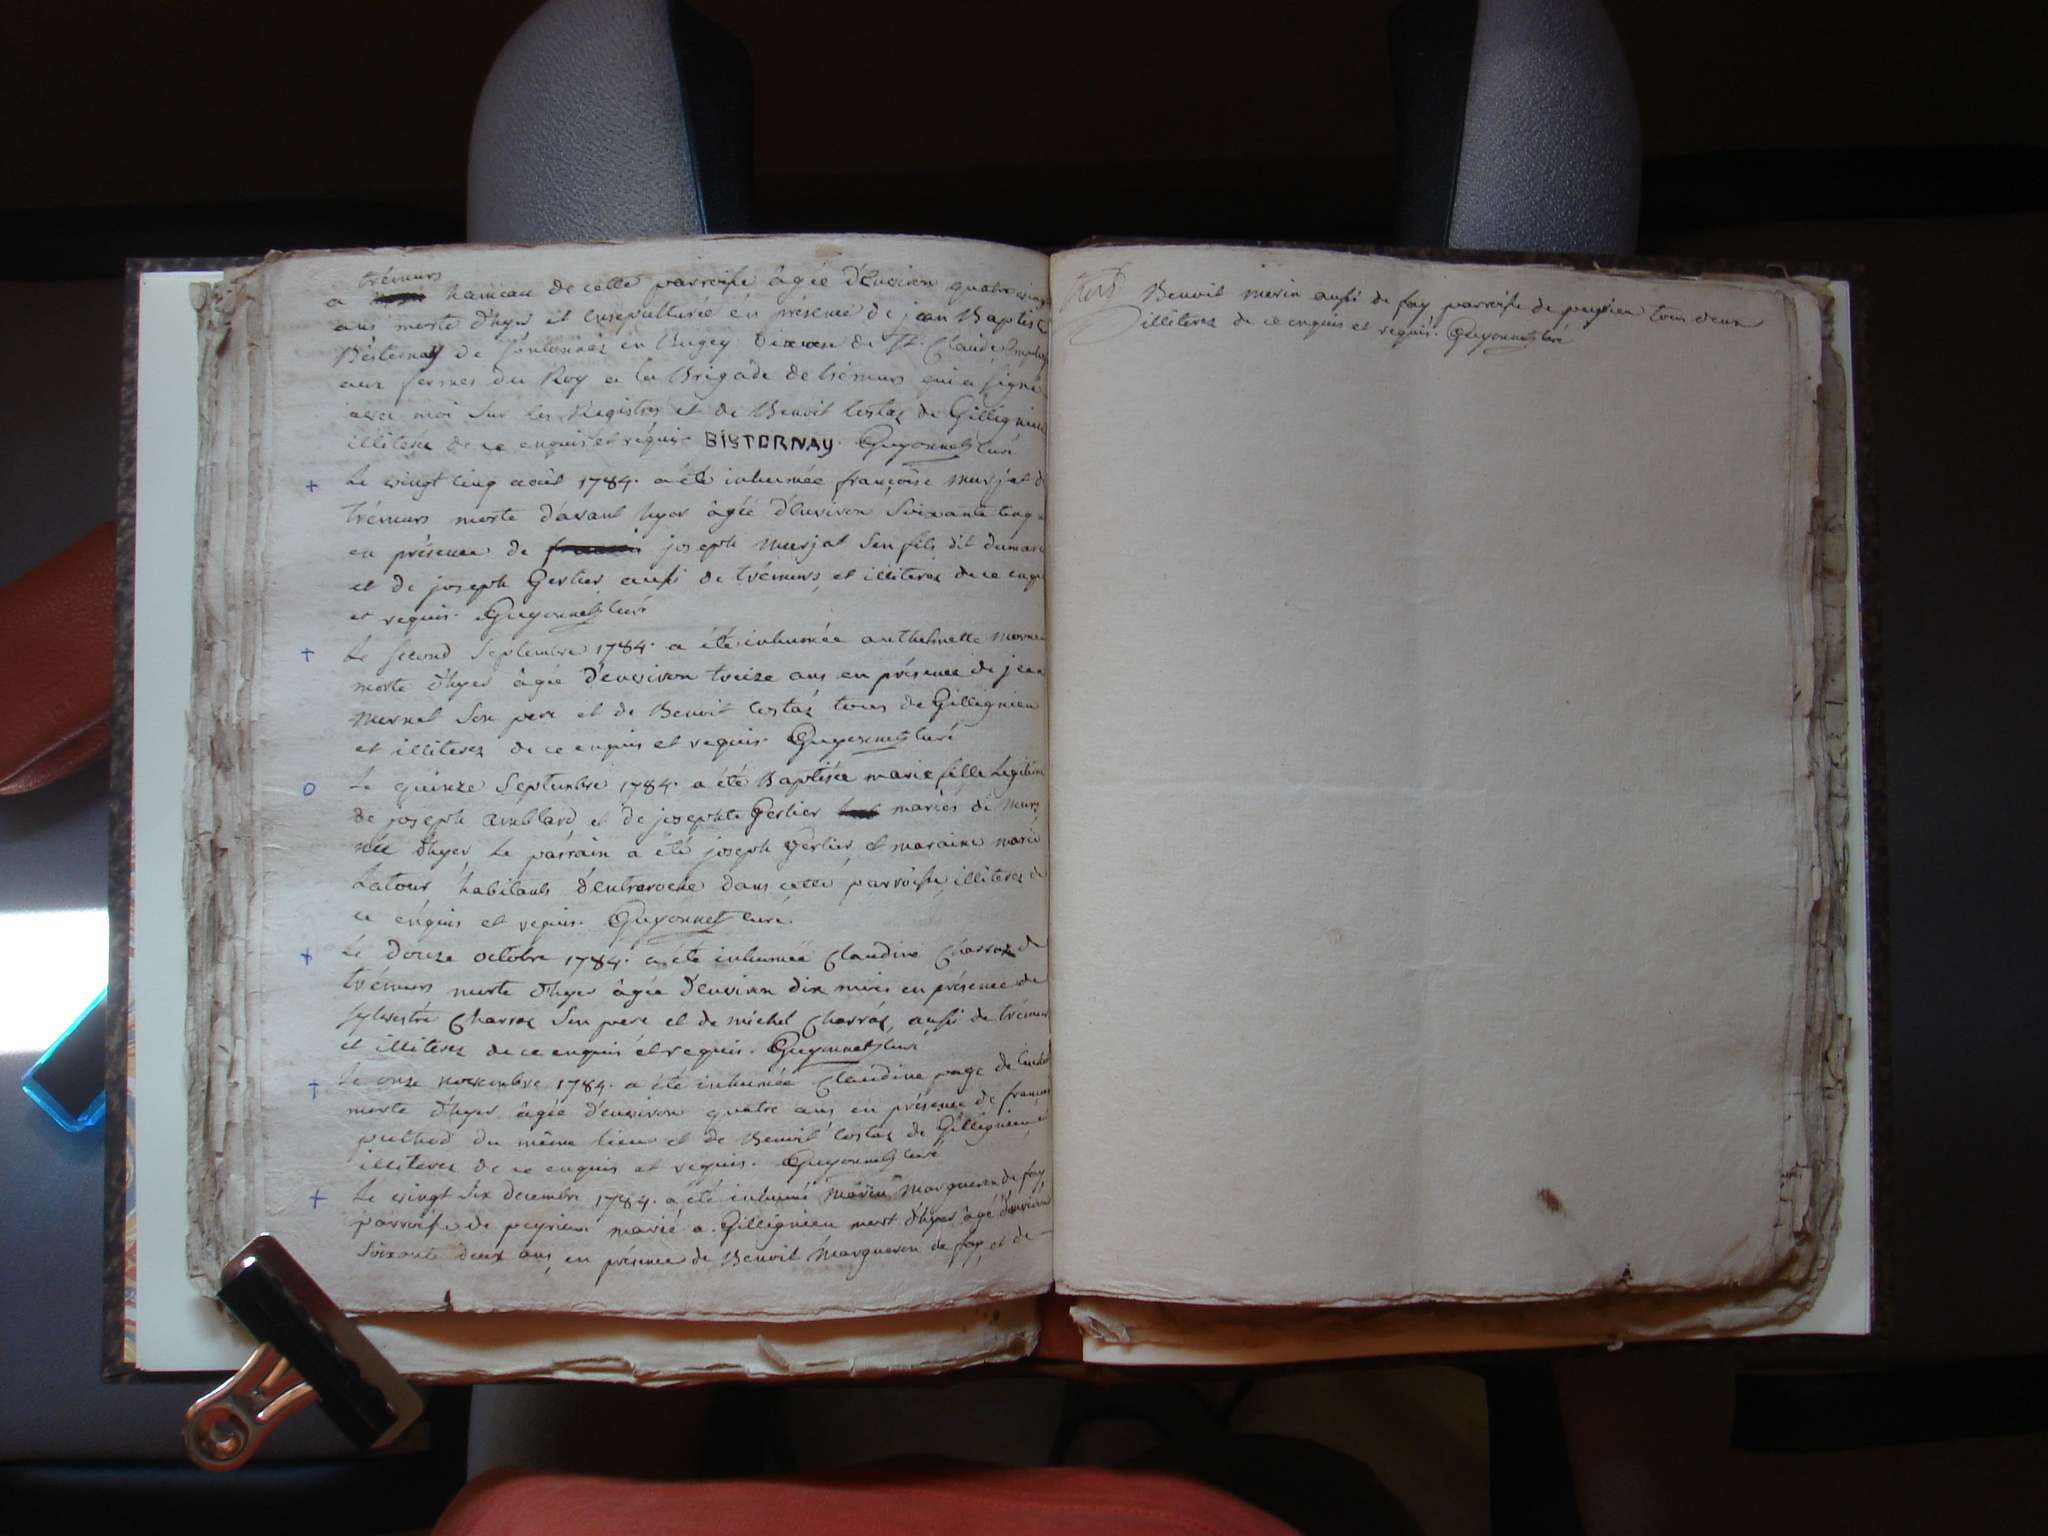 trémurs
a hameau de cette parroisse âgée d'Environ quatre vingt
ans morte d'hyer et ensepulturée en présence de jean Baptiste
Bisternay de en Bugey Diocese de St. Claude Employé
aux fermes du Roy a la Brigade de trémurs qui a signé
avec moi sur les Registres et de Benoit Costaz de Gillignieu
illiteré de ce enquis et réquis. BISTERNAY. Guyonnet curé
+ Le vingt cinq août 1784. a été inhumée françoise murjat de
trémurs morte d'avant hyer âgée d'Environ Soixante cinq
en présence de joseph murjat son fils dit
et de joseph Gerlier aussi de trémurs et illiterez de ce enquis
et requis. Guyonnet curé
+ Le second Septembre 1784. a été inhumée anthelmette
morte d'hyer âgée d'environ treize ans en présence de jean
mornet son pere et de Benoit Costaz tous de Gillignieu
et illiterez de ce enquis et requis. Guyonnet curé
o Le quinze Septembre 1784. a été Baptisée marie fille Legitime
de joseph amblard et de josephte Gerlier mariés de murs
née d'hyer Le parrain a été joseph Gerlier et maraine marie
Latour habitants d'entreroche dans cette parroisse illiterez de
ce enquis et requis. Guyonnet curé.
+ Le Douze octobre 1784. a été inhumée Claudine Charraz de
trémurs morte d'hyer âgée d'environ dix mois en présence de
sylvestre Charraz son pere et de michel Charraz aussi de trémurs
et illiterez de ce enquis et requis. Guyonnet curé
+ Le onze novembre 1784. a été inhumée Claudine page de
morte d'hyer âgée d'environ quatre ans en présence de françois
puthod du même lieu et de Benoit Costaz de Gillignieu
illiterez de ce enquis et requis. Guyonnet curé
+ Le vingt six decembre 1784. a été inhumé Marin Margueron de fay
parroisse de peyrieu marié a Gillignieu mort d'hyer âgé d'environ
soixante deux ans, en présence de Benoit Margueron de fay et de
Benoit morin aussi de fay parroisse de peyrieu tous deux
illiterez de ce enquis et requis. Guyonnet curé